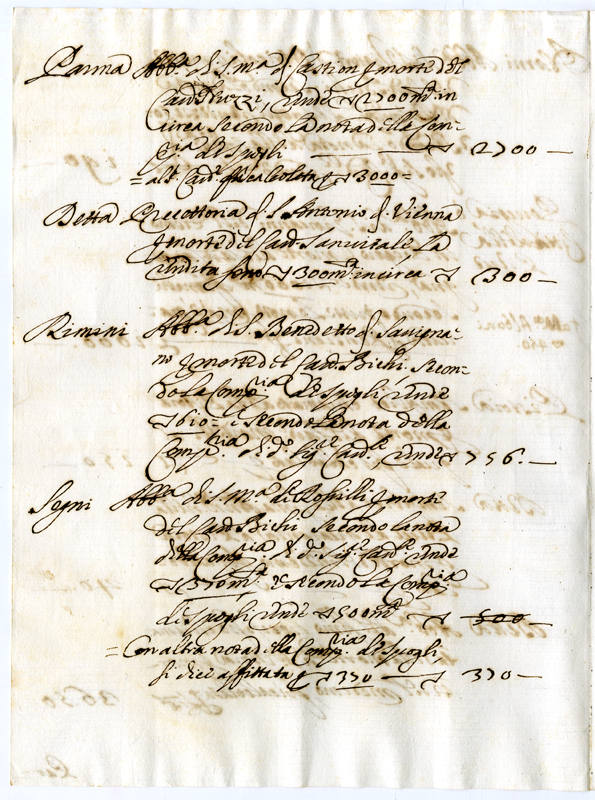 Parma Abb.ª di S. M.ª di Castion p morte del
Card.
rende 2700 m.ta in
circa secondo la nota della Com-
p.ria de Spogli ——— 2700 —
Detta Precettoria di S. Antonio di Vienna
p morte del Card. Sanvitale la
rendita sono 300 m.ta in circa 300 —
Rimini Abb.ª di S. Benedetto di Savigna-
no p morte del Card. Bichi. Secon-
do la Comp.ria de Spogli rende
610 = e secondo la nota della
Comp.ria di d.º Sig.r Card.le, rende 756. —
Segni Abb.ª di S. M.ª di p morte
del Card. Bichi secondo la nota
della Comp.ria di d.º Sig.r Card.le rende
370 m.ta e secondo la Comp.ria
de Spogli rende 500 m.ta 500
= Con altra nota della Comp.ria de Spogli,
si dice affittata p 370 — 370 —